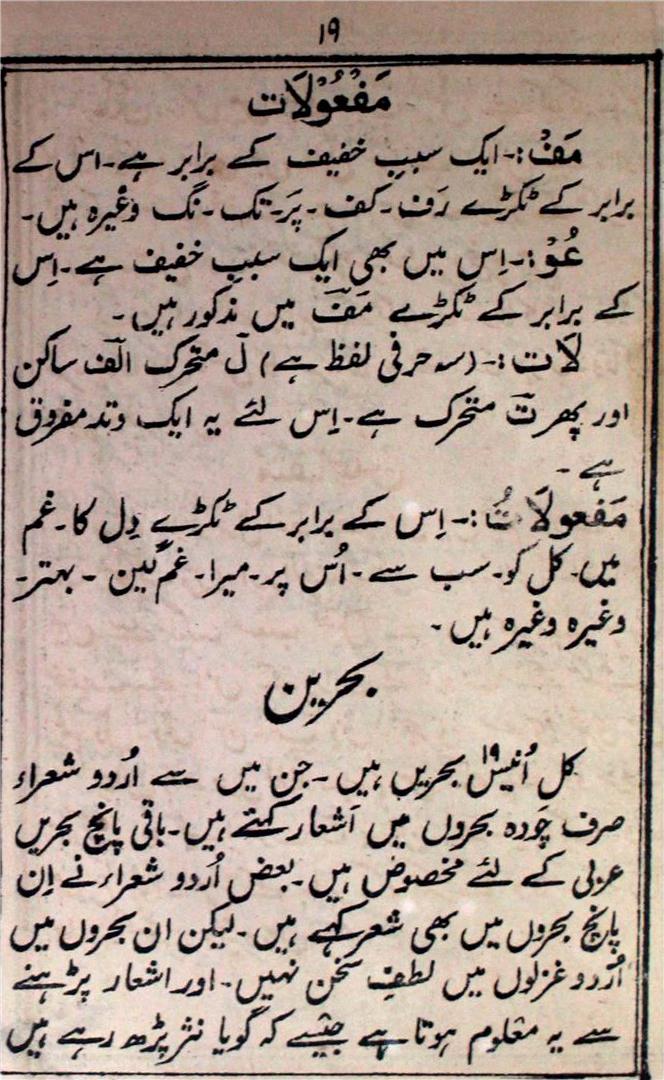 ۱۹
مَفْعُوْلَات
مَفْ :- ایک سببِ خفیف کے برابر ہے۔ اس کے
برابر کے ٹکڑے رَف۔ کف۔ پَر۔ تک۔ نگ وغیرہ ہیں۔
عُوْ :- اِس میں بھی ایک سببِ خفیف ہے۔ اِس
کے برابر کے ٹکڑے مَفْ میں مذکور ہیں۔
لَات :- (سہ حرفی لفظ ہے) لَ متحرک الف ساکن
اور پھر ت متحرک ہے۔ اِس لئے یہ ایک وتد مفروق
ہے۔
مَفعولَاتُ :- اِس کے برابر کے ٹکڑے دِل کا۔ غم
میں۔ کل کو۔ سب سے۔ اُس پر۔ میرا۔ غم گین۔ بہتر۔
وغیرہ وغیرہ ہیں۔
بحریں
کل اُنیس ۱۹ بحریں ہیں۔ جن میں سے اُردو شعراء
صرف چَودہ بحروں میں اَشعار کہتے ہیں۔ باقی پانچ بحریں
عربی کے لئے مخصوص ہیں۔ بعض اُردو شعراء نے اِن
پانچ بحروں میں بھی شعر کہے ہیں۔ لیکن ان بحروں میں
اُردو غزلوں میں لطفِ سخن نہیں۔ اور اشعار پڑہنے
سے یہ معلوم ہوتا ہے جیسے کہ گویا نثر پڑھ رہے ہیں